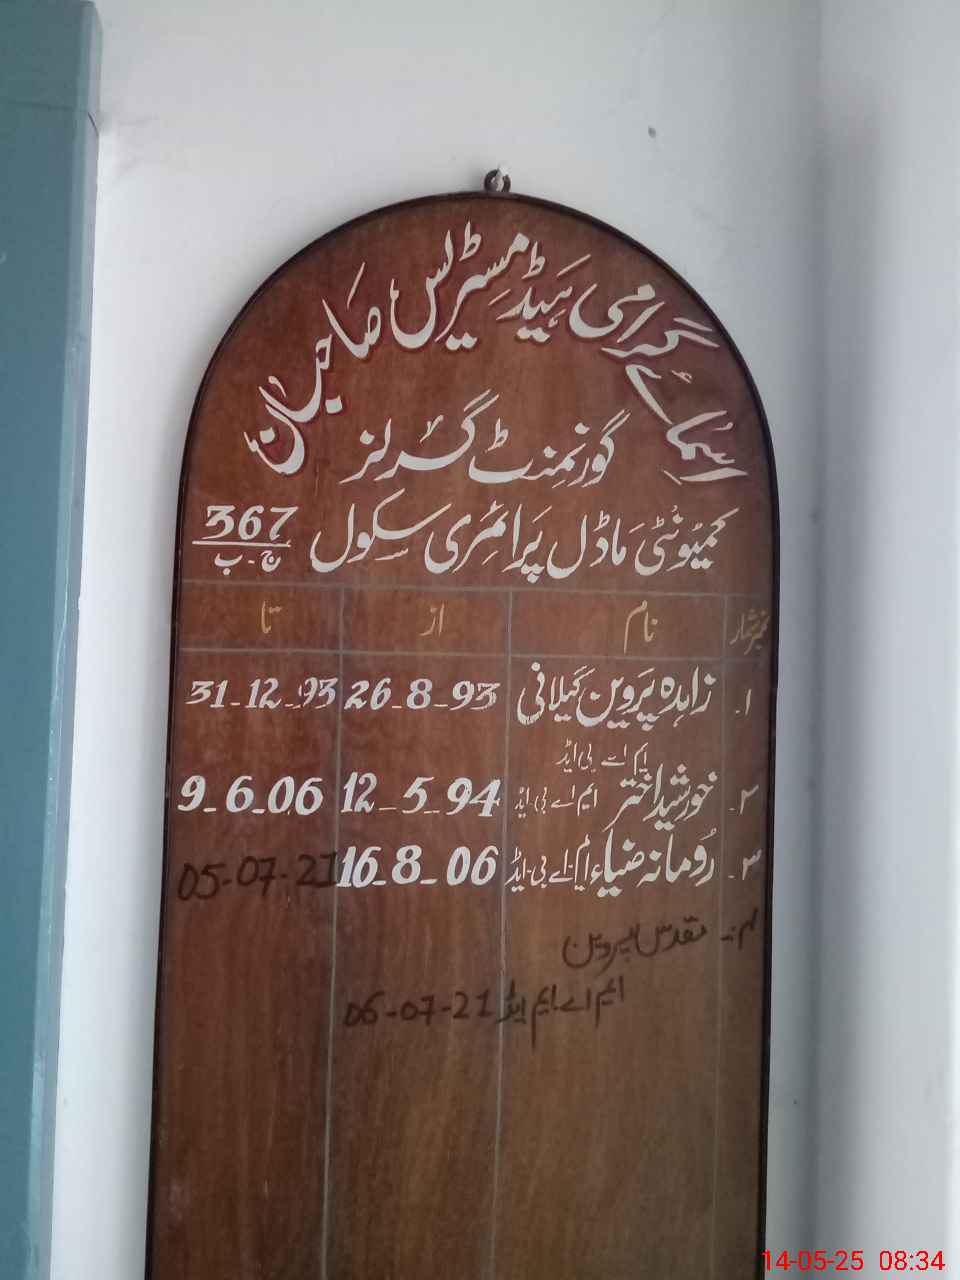 اسمائے گرامی ہیڈ مسٹریس صاحبان
گورنمنٹ گرلز
کمیونٹی ماڈل پرائمری سکول 367 ج۔ب
نمبر شمار نام از تا
۱۔ زاہدہ پروین گیلانی 26-8-93 31-12-93
ایم اے بی ایڈ
۲۔ خورشید اختر ایم اے بی۔ایڈ 12-5-94 9-6-06
۳۔ رومانہ ضیاء ایم۔اے بی۔ایڈ 16-8-06 05-07-21
۴۔ مقدس پروین
ایم اے ایم ایڈ 06-07-21
14-05-25 08:34